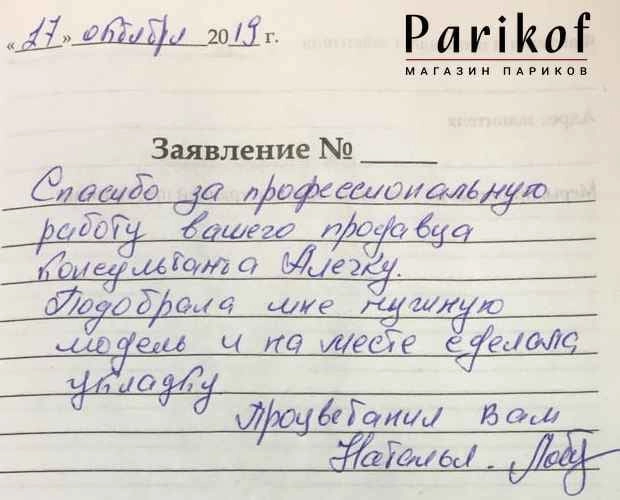 Parikof
МАГАЗИН ПАРИКОВ
«27» октября 2019 г.
Заявление № ______
Спасибо за профессиональную
работу вашего продавца
консультанта Алечку.
Подобрала мне нужную
модель и на месте сделала
укладку
Процветания Вам
Наталья.